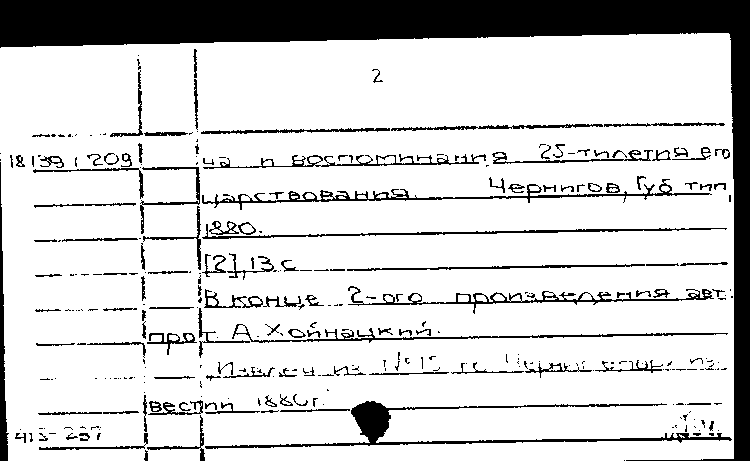 2
18139 1209 ца и воспоминания 25-тилетия его
царствования. Чернигов, Губ тип,
1880.
[2], 13 с
В конце 2-ого произведения авт:
прот. А. Хойнацкий.
Извлеч из № 15 Черниг епарх из-
вестий 1880 г.
413-237